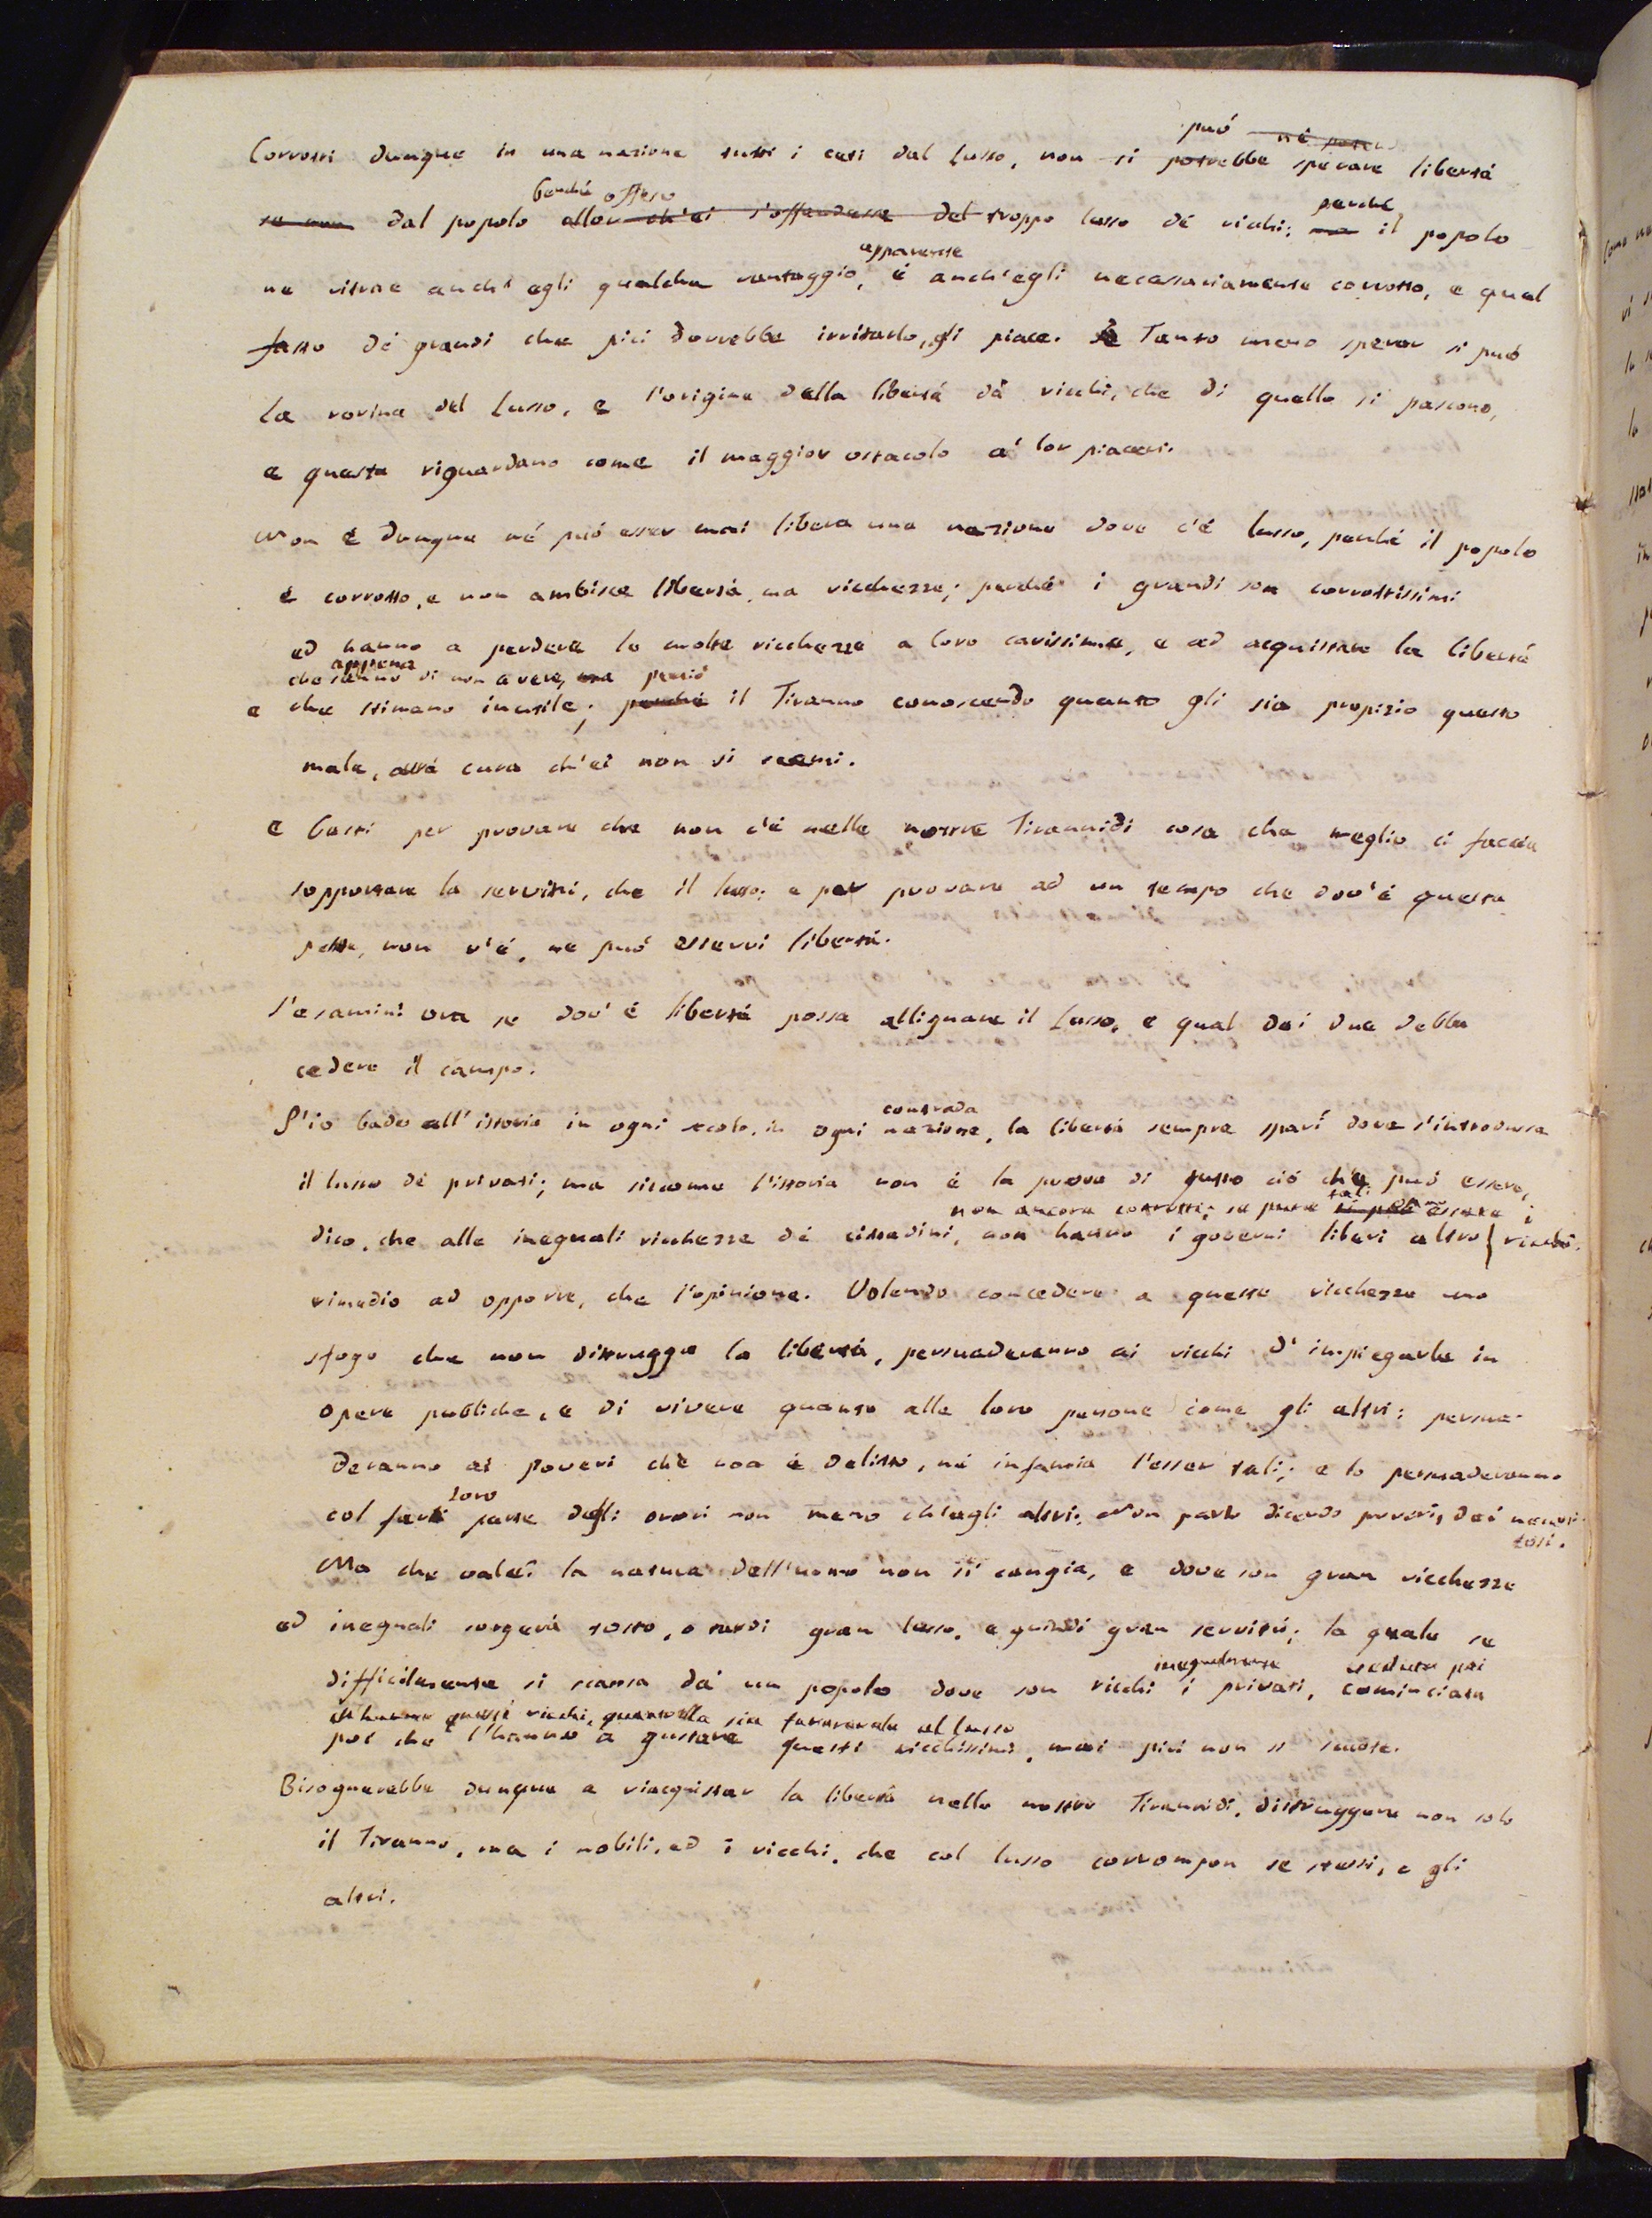 può né
Corrotti dunque in una nazione tutti i ceti dal lusso, non si potrebbe sperare libertà
benché offeso perché
se non dal popolo allor ch'ei s'offendesse del troppo lusso de' ricchi; ma il popolo
apparente
ne ritrae anch' egli qualche vantaggio, è anch'egli necessariamente corrotto, e quel
fasto de' grandi che più dovrebbe irritarlo, gli piace. Tanto meno sperar si può
la rovina del lusso, e l'origine della libertà da' ricchi, che di quello si pascono,
e questa riguardano come il maggior ostacolo a' lor piaceri.
Non è dunque né può esser mai libera una nazione dove c'è lusso, perché il popolo
è corrotto, e non ambisce libertà, ma ricchezze; perché i grandi son corrottissimi
ed hanno a perdere le molte ricchezze a loro carissime, e ad acquistare la libertà
appena
che sanno di non avere, ma perciò
e che stimano inutile; perché il Tiranno conoscendo quanto gli sia propizio questo
male, avrà cura ch'ei non si scemi.
E basti per provare che non c'è nelle nostre Tirannidi cosa che meglio ci faccia
sopportare la servitù, che il lusso; e per provare ad un tempo che dov'è questa
peste, non v'è, ne può esservi libertà.
S'esamini ora se dov'è libertà possa allignare il lusso, e qual dei due debba
cedere il campo.
contrada
S'io bado all'istoria in ogni secolo, in ogni nazione, la libertà sempre sparì dove s'introdusse
il lusso de' privati; ma siccome l'istoria non è la prova di tutto ciò che può essere,
non ancora corrotti; se pure tali essere i
dico, che alle ineguali ricchezze de' cittadini, non hanno i governi liberi altro ricchi.
rimedio ad opporre, che l'opinione. Volendo concedere a queste ricchezze uno
sfogo che non distrugga la libertà, persuaderanno ai ricchi d'impiegarle in
opere publiche, e di vivere quanto alle loro persone come gli altri; persua-
deranno ai poveri che non è delitto, né infamia l'esser tali; e lo persuaderanno
loro
col farli parte degli onori non meno ch'agli altri. Non parlo dicendo poveri, dei necessi-
tosi.
Ma che vale? la natura dell'uomo non si cangia, e dove son gran ricchezze
ed ineguali sorgerà tosto, o tardi gran lusso, e quindi gran servitù; la quale se
inegualmente creduta poi
difficilmente si scansa da un popolo dove son ricchi i privati, cominciata
questi ricchi, quanto ella sia favorevole al lusso
poi che l'hanno a gustare questi ricchissimi, mai più non si scuote.
Bisognerebbe dunque a riacquistar la libertà nelle nostre Tirannidi, distruggere non solo
il Tiranno, ma i nobili, ed i ricchi, che col lusso corrompon se stessi, e gli
altri.